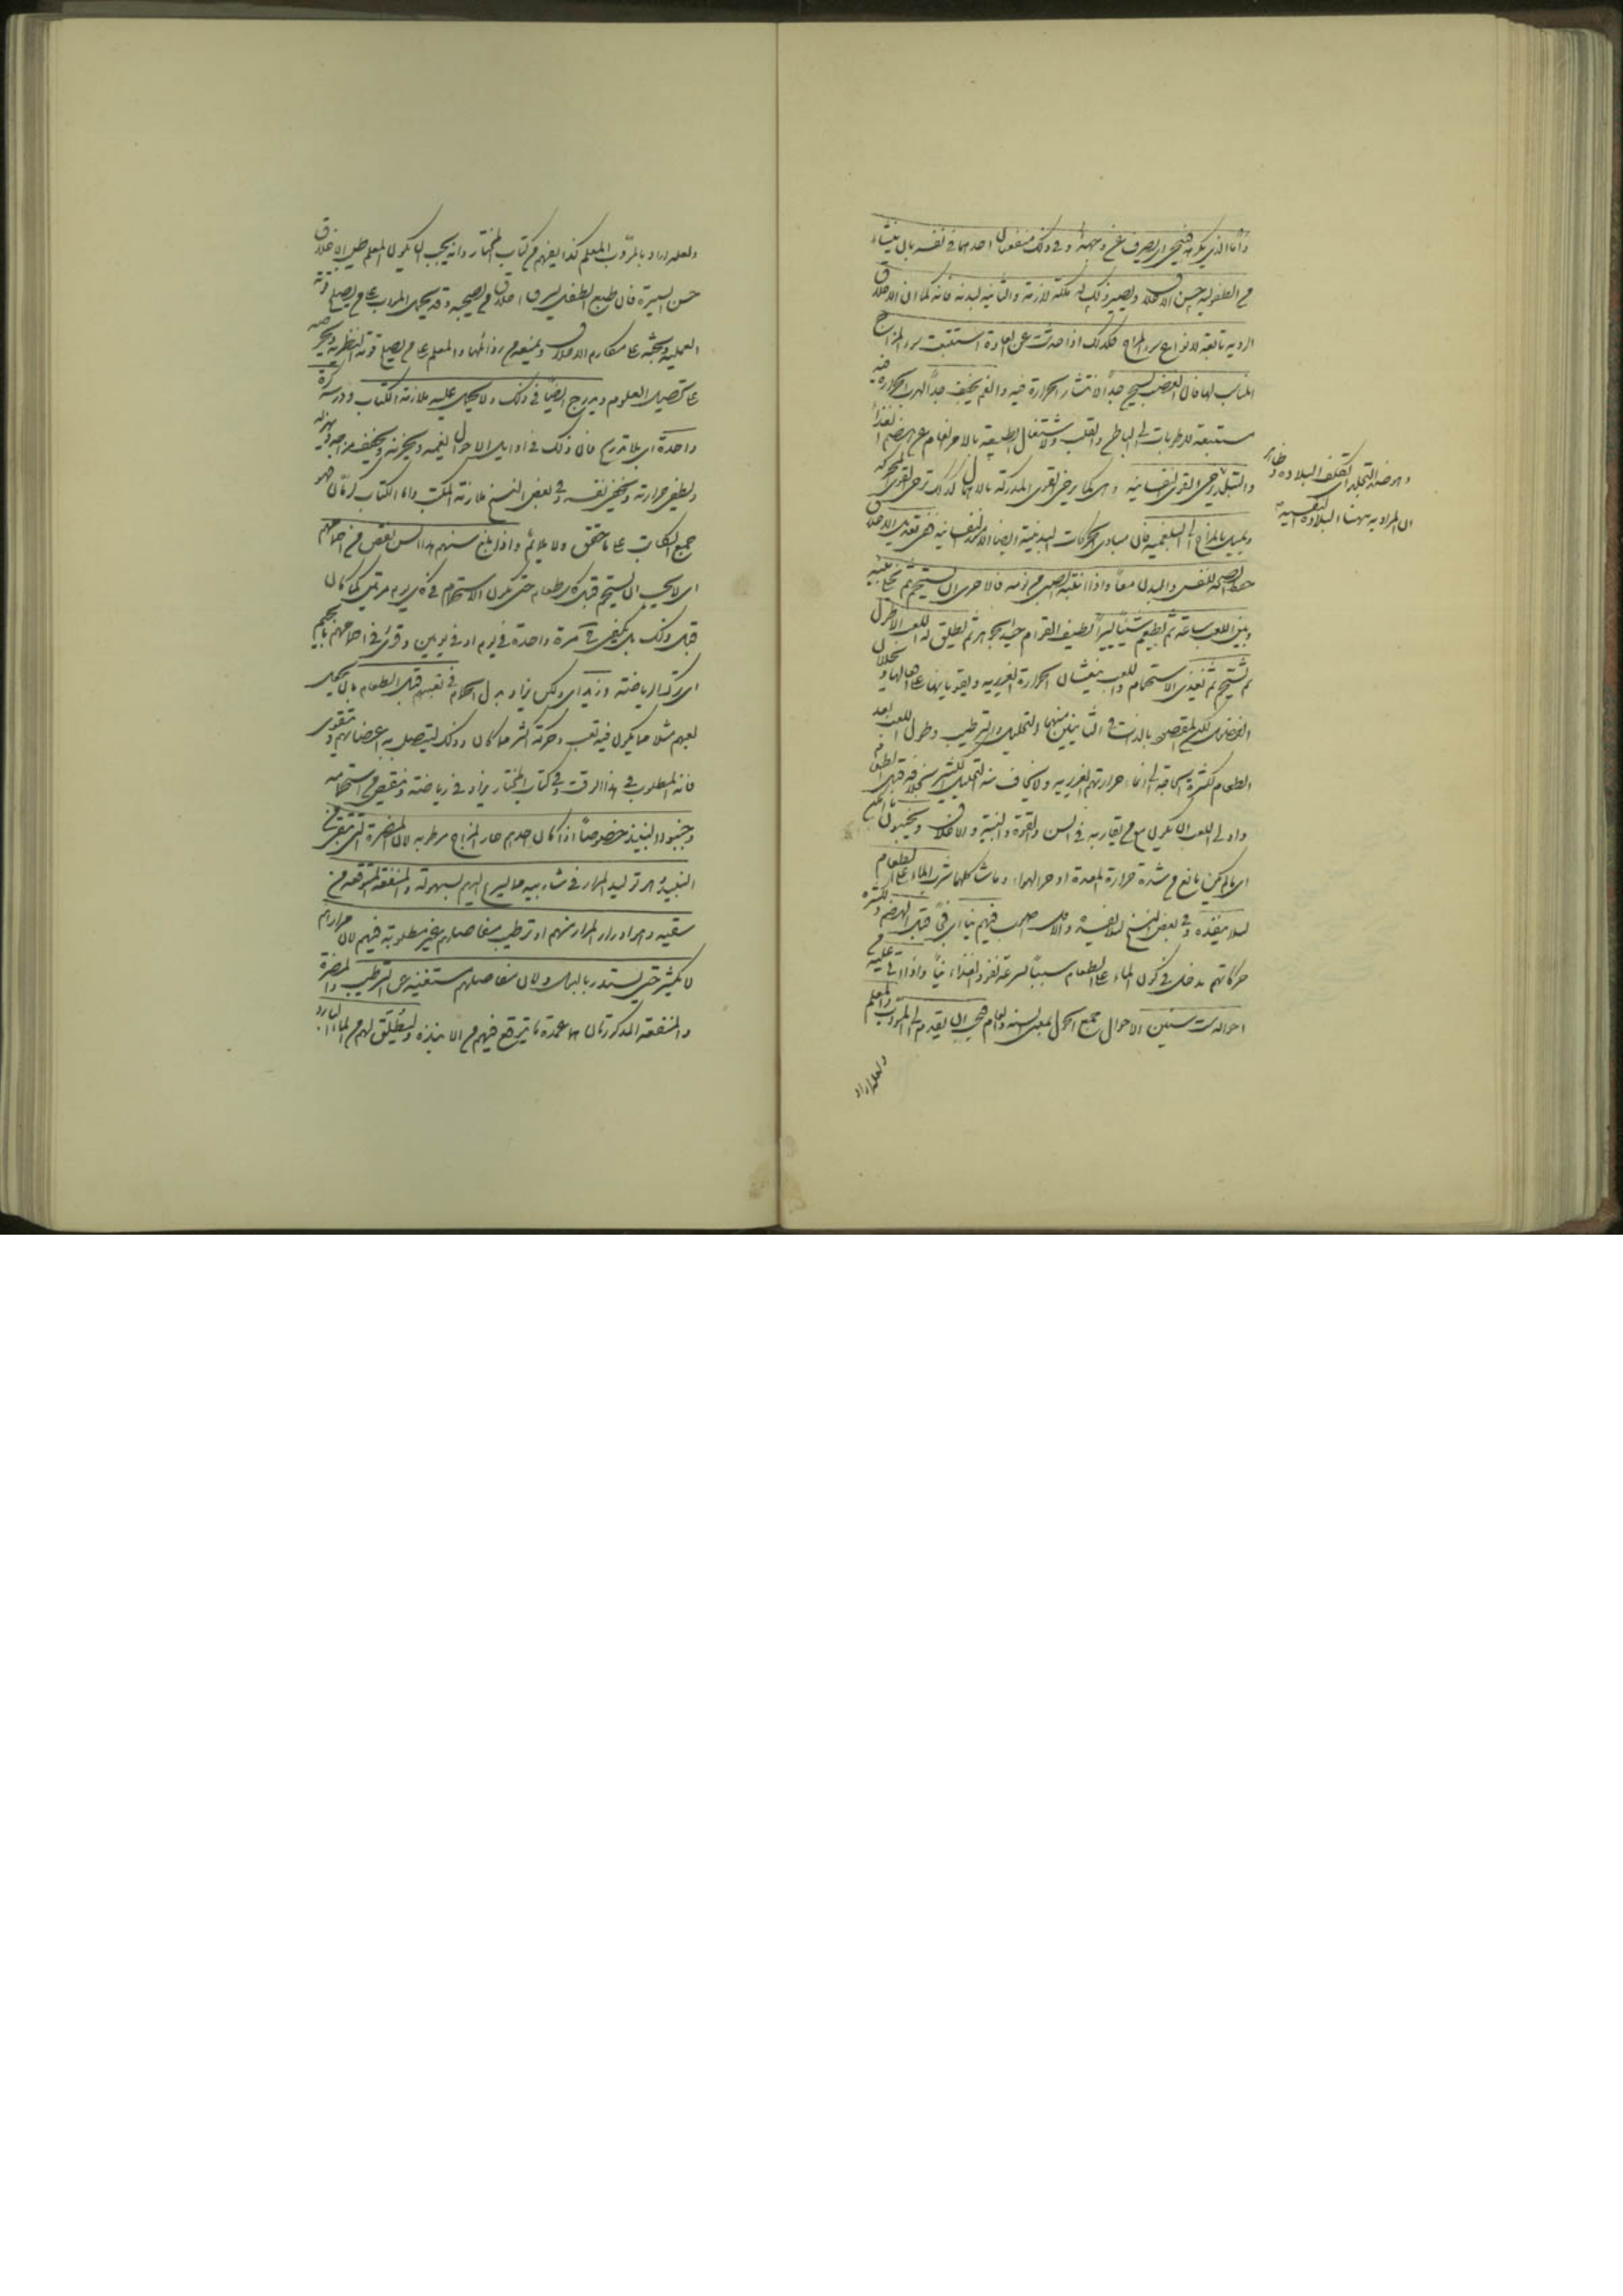 واما الذي يكرهه فينحى اي يصرف عن وجهه وفي ذلك منفعتان احديهما في نفسه بان ينشاء
من الطفولية حسن الاخلاق ويصير ذلك له ملكة لازمة والثانية لبدنه فانه كما ان الاخلاق
الردية تابعة لانواع سوء المزاج فكذلك اذا حدثت عن العادة استتبعت سوء المزاج
المناسب لها فان الغضب يسخن جداً لانتشار الحرارة فيه والغم يجفف جداً لهرب الحرارة فيه
مستتبعة للرطوبات الى الباطن والقلب ولاشتغال الطبيعة بالامر الغام عن هضم الغذاء
والتبلد يرخى القوى النفسانية وهي كما يرخى القوى المدركة بالاهمال كذلك ترخى القوى المحركة
ويميل بالمزاج الى البلغمية فان مبادى الحركات البدنية ايضا الامور النفسانية ففى تعديل الاخلاق
حفظ الصحة للنفس والبدن معاً واذا انتبه الصبي من نومه فالاحرى ان يستحم ثم يخلى بينه
وبين اللعب ساعة ثم يطعم شيئا يسيراً لطيف القوام جيد الجوهر ثم يطلق له اللعب الاطول
ثم يستحم ثم يغذى الاستحمام واللعب ينعشان الحرارة الغريزية ويقويانها على افعالها ويحللان
الفضلات لكن المقصود بالذات في الثانيين منهما التحليل والترطيب وطول اللعب بعد
الطعام لكثرة الحاجة الى انماء حرارتهم الغريزية ولا يخاف منه التحليل الكثير بخلافه قبل الطعام
واولى اللعب ان يكون مع من يقاربه في السن والقوة والبنية والاخلاق ويجنبون ما امكن
اي ما لم يكن مانع من شدة حرارة المعدة او حر الهواء وما شاكلهما شرب الماء على الطعام
لئلا ينفذه وفي بعض النسخ لئلا ينفذ فيهم نياً اي فجاً قبل الهضم ولكثرة
حركاتهم مدخل في كون الماء على الطعام سبباً لسرعة نفوذ الغذاء نياً واذا اتى عليه من
احواله ست سنين الاحوال جمع الحول بمعنى السنة والعام فيجب ان يقدم الى المؤدب والمعلم
ولعله اراد
وهو ضد التجلد اي تكلف البلادة وظاهر
ان المراد به ههنا البلادة النفسية
ولعله اراد بالمؤدب المعلم كذا يفهم من كتاب المختار وانه يجب ان يكون المعلم طيب الاخلاق
حسن السيرة فان طبع الطفل يسرق اخلاق من يصحبه وقد يحمل المؤدب على من يصلح قوته
العملية ويحثه على مكارم الاخلاق ويمنعه من رذائلها والمعلم على من يصلح قوته النظرية ويحرضه
على تحصيل العلوم ويدرج ايضاً في ذلك ولا يحمل عليه ملازمة الكتاب ودرسه كرة
واحدة اي بلا تدريج فان ذلك في اوائل الاحوال يغمه ويحزنه ويجفف مزاجه ويهزله
ويطفى حرارته ويخزى نفسه وفي بعض النسخ ملازمة المكتب واما الكتاب كرمان فهو
جمع الكاتب على ما حقق ولا يلائم واذا بلغ سنهم هذا السن نقص من احمامهم
اي لا يجب ان يستحم قبل كل طعام حتى يكون الاستحمام في كل يوم مرتين كما كان
قبل ذلك بل يكتفى فيه مرة واحدة في يوم او في يومين وقرئ في اجمامهم بالجيم
اي ترك الرياضة وزيد اي ولكن يزاد بدل الحمام في تعبهم قبل الطعام بان يجعل
لعبهم مثلا مما يكون فيه تعب وحركة اكثر مما كان وذلك ليتصل به اعضائهم ويتقوى
فانه المطلوب في هذا الوقت وفي كتاب المختار يزاد في رياضته وينقص من استحمامه
وجنبوا النبيذ خصوصاً اذا كان احدهم حار المزاج مرطوبه لان المضرة التي تتقى من
النبيذ وهو توليد المرار في شاربيه مما يسرع اليهم بسهولة والمنفعة المتوقعة من
سقيه وهو ادرار المرار منهم او ترطيب مفاصلهم غير مطلوبة فيهم لان مرارهم
لا يكثر حتى يستدر بالبول ولان مفاصلهم مستغنية عن الترطيب والمضرة
والمنفعة المذكورتان هما عمدة ما يتوقع فيهم من الانبذة وليطلق لهم من الماء البارد